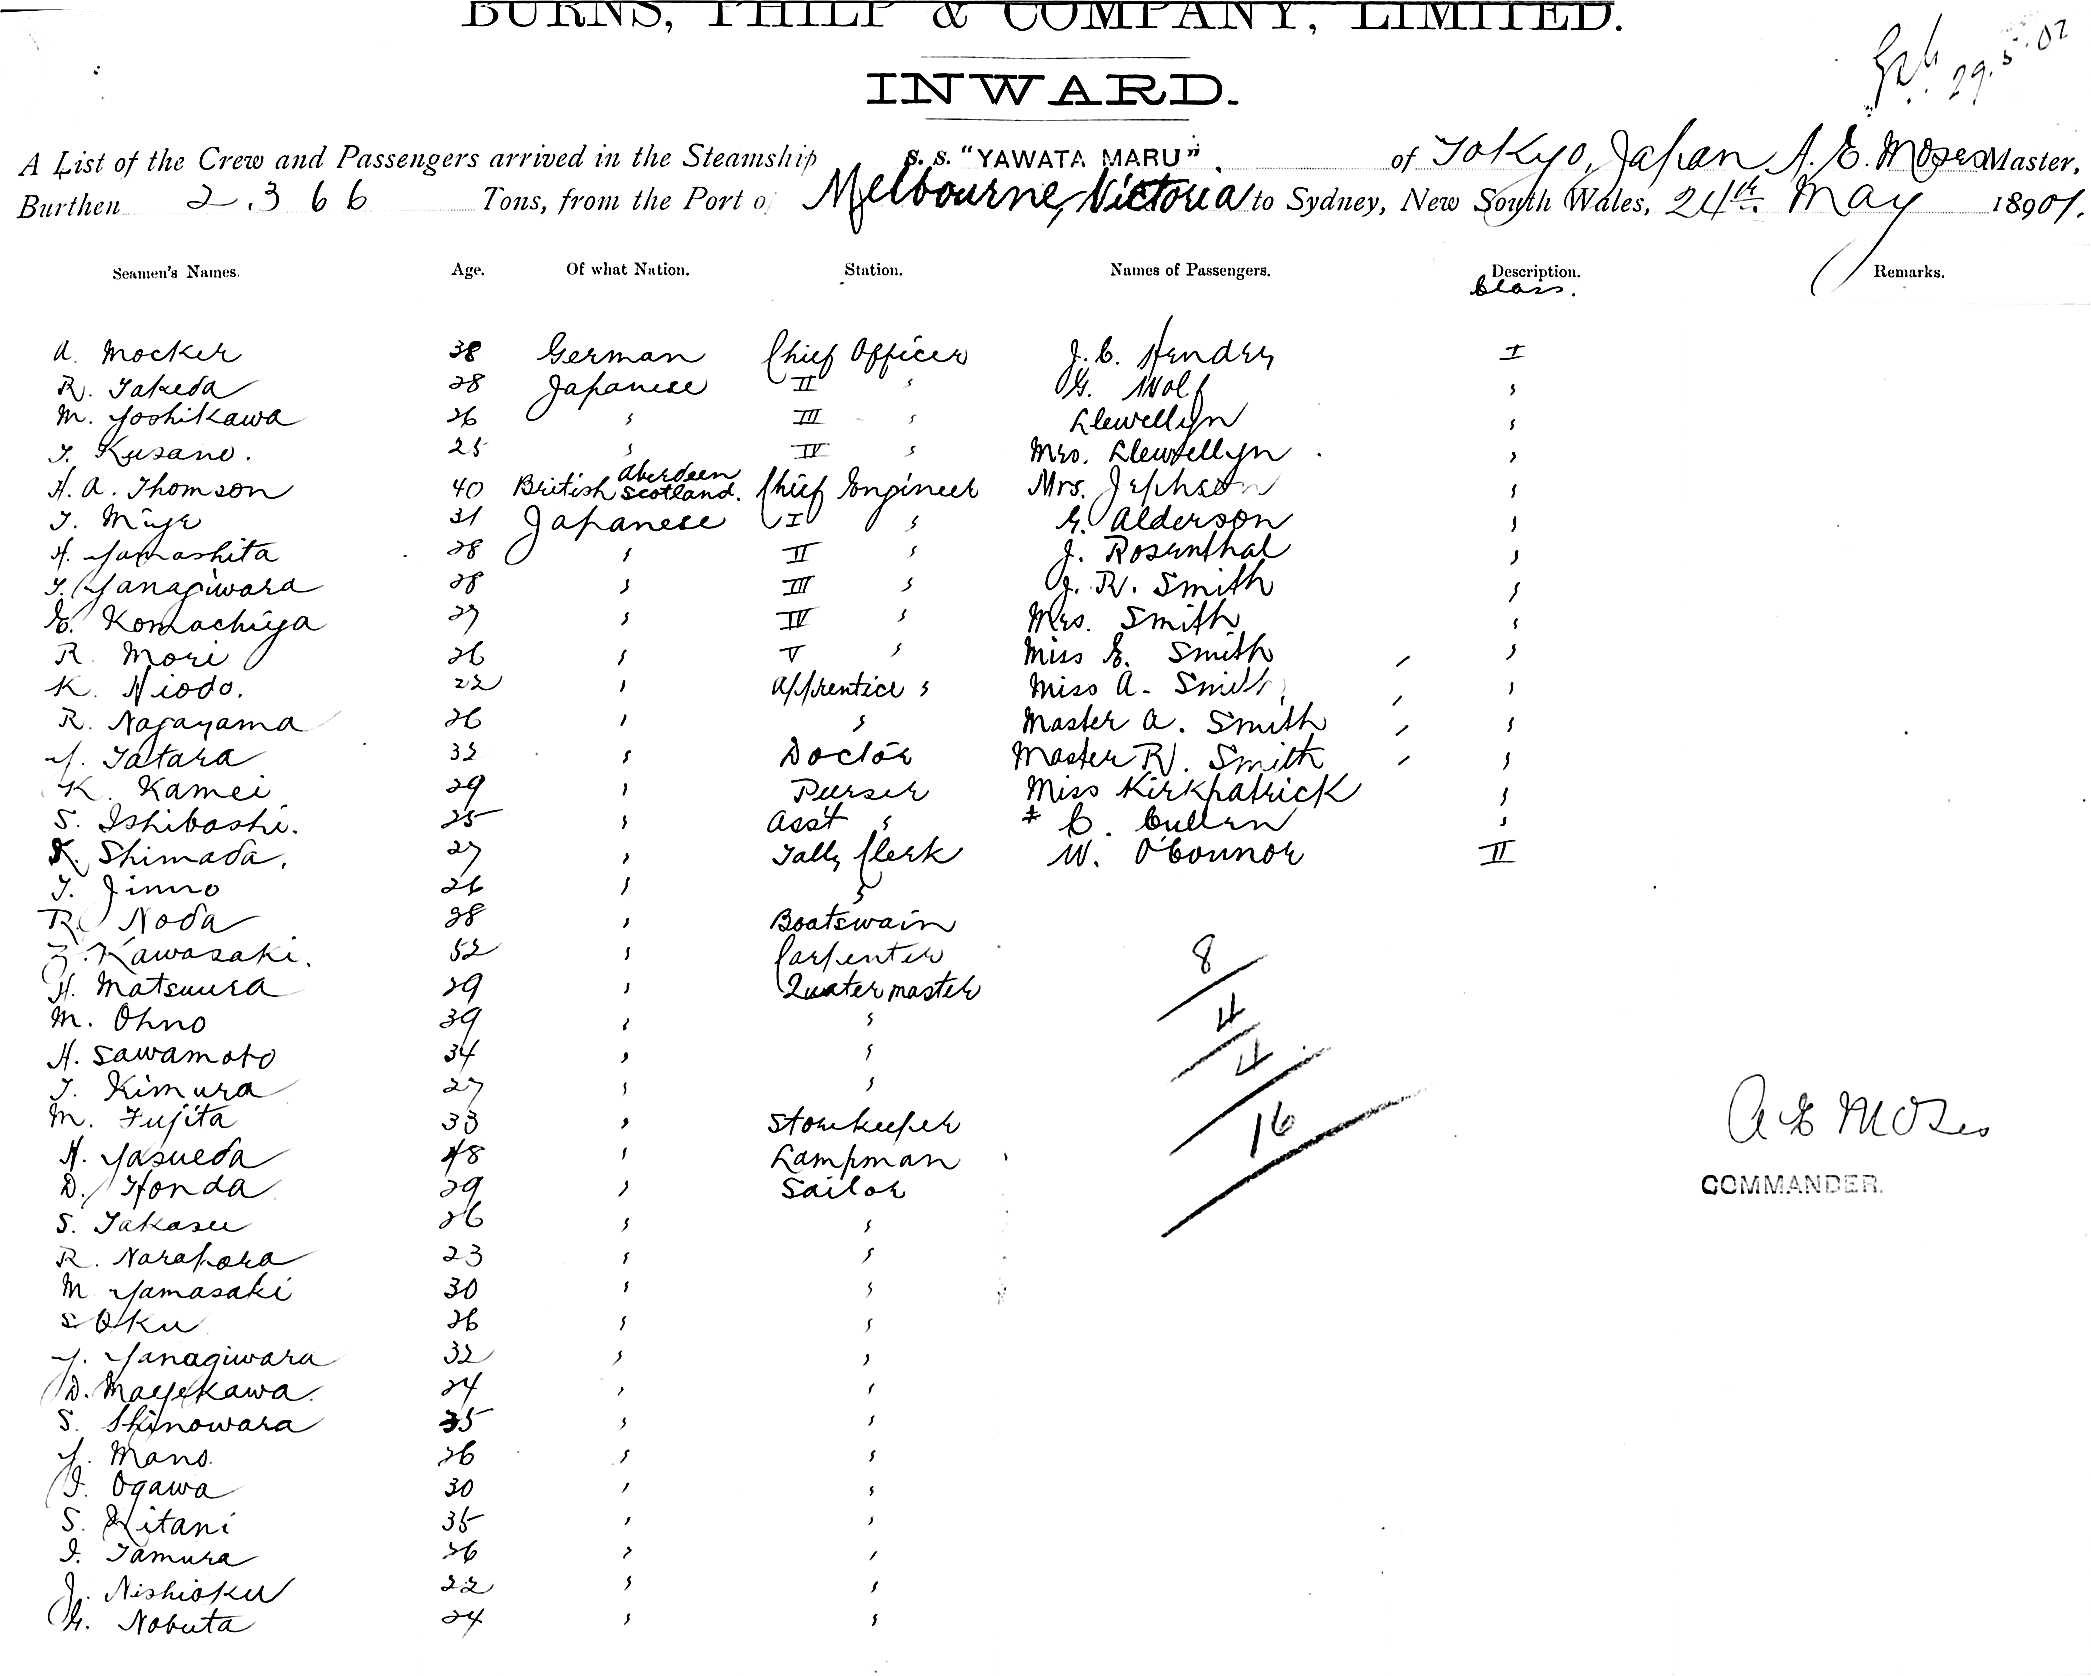 BURNS, PHILP & COMPANY, LIMITED.
29.5.02
INWARD.
A List of the Crew and Passengers arrived in the Steamship S. S. "YAWATA MARU" of Tokyo, Japan A. E. Moses Master,
Burthen 2,366 Tons, from the Port o Melbourne, Victoria to Sydney, New South Wales, 24th May 18901.
Seamen's Names. Age. Of what Nation. Station. Names of Passengers. Description. Remarks.
Class.
A. Mocker 38 German Chief Officer J. C. Hendry I
R. Takeda 28 Japanese II " G. Wolf "
M. Yoshikawa 26 " III " Llewellyn "
T. Kusano. 25 " IV " Mrs. Llewellyn "
H. A. Thomson 40 British Aberdeen Scotland. Chief Engineer Mrs. Jephson "
T. Miye 31 Japanese I " G. Alderson "
H. Yamashita 28 " II " J. Rosenthal "
T. Yanagiwara 28 " III " J. R. Smith "
E. Komachiya 27 " IV " Mrs. Smith "
R. Mori 26 " V " Miss E. Smith "
K. Niodo. 22 " Apprentice " Miss A. Smith "
R. Nagayama 26 " " Master A. Smith "
Y. Tatara 32 " Doctor Master R. Smith "
K. Kamei 29 " Purser Miss Kirkpatrick "
S. Ishibashi. 25 " Asst " C. Cullen "
K. Shimada. 27 " Tally Clerk W. O'Connor II
T. Jinno 26 " "
R. Noda 28 " Boatswain
Z. Kawasaki. 52 " Carpenter
H. Matsuura 29 " Quatermaster
M. Ohno 39 " "
H. Sawamoto 34 " "
T. Kimura 27 " "
M. Fujita 33 " Storekeeper
N. Yasueda 48 " Lampman
D. Honda 29 " Sailor
S. Takasu 26 " "
R. Narahara 23 " "
M Yamasaki 30 " "
S Oku 26 " "
Y. Yanagiwara 32 " "
D. Mayekawa. 24 " "
S. Shinowara 35 " "
Y. Mano. 26 " "
I. Ogawa 30 " "
S. Kitani 35 " "
I. Tamura 26 " "
J. Nishioka 22 " "
G. Nobuta 24 " "
8
4
4
16
A E Moses
COMMANDER.